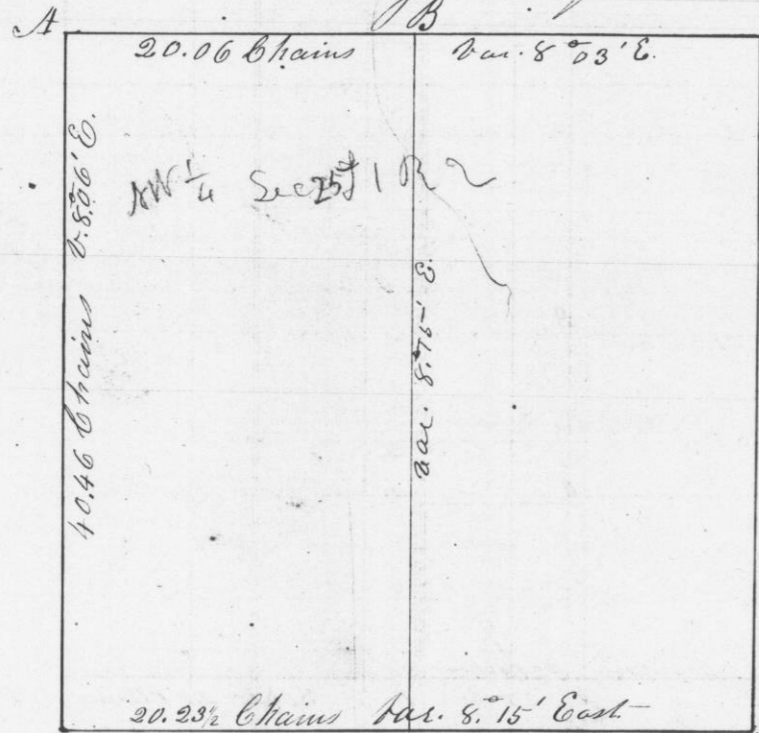 A
B
20.06 Chains Var. 8°03' E.
40.46 Chains V. 8°06' E.
NW 1/4 Sec 25 T 1 R 2
Var. 8°15' E.
20.23½ Chains Var. 8.°15' East